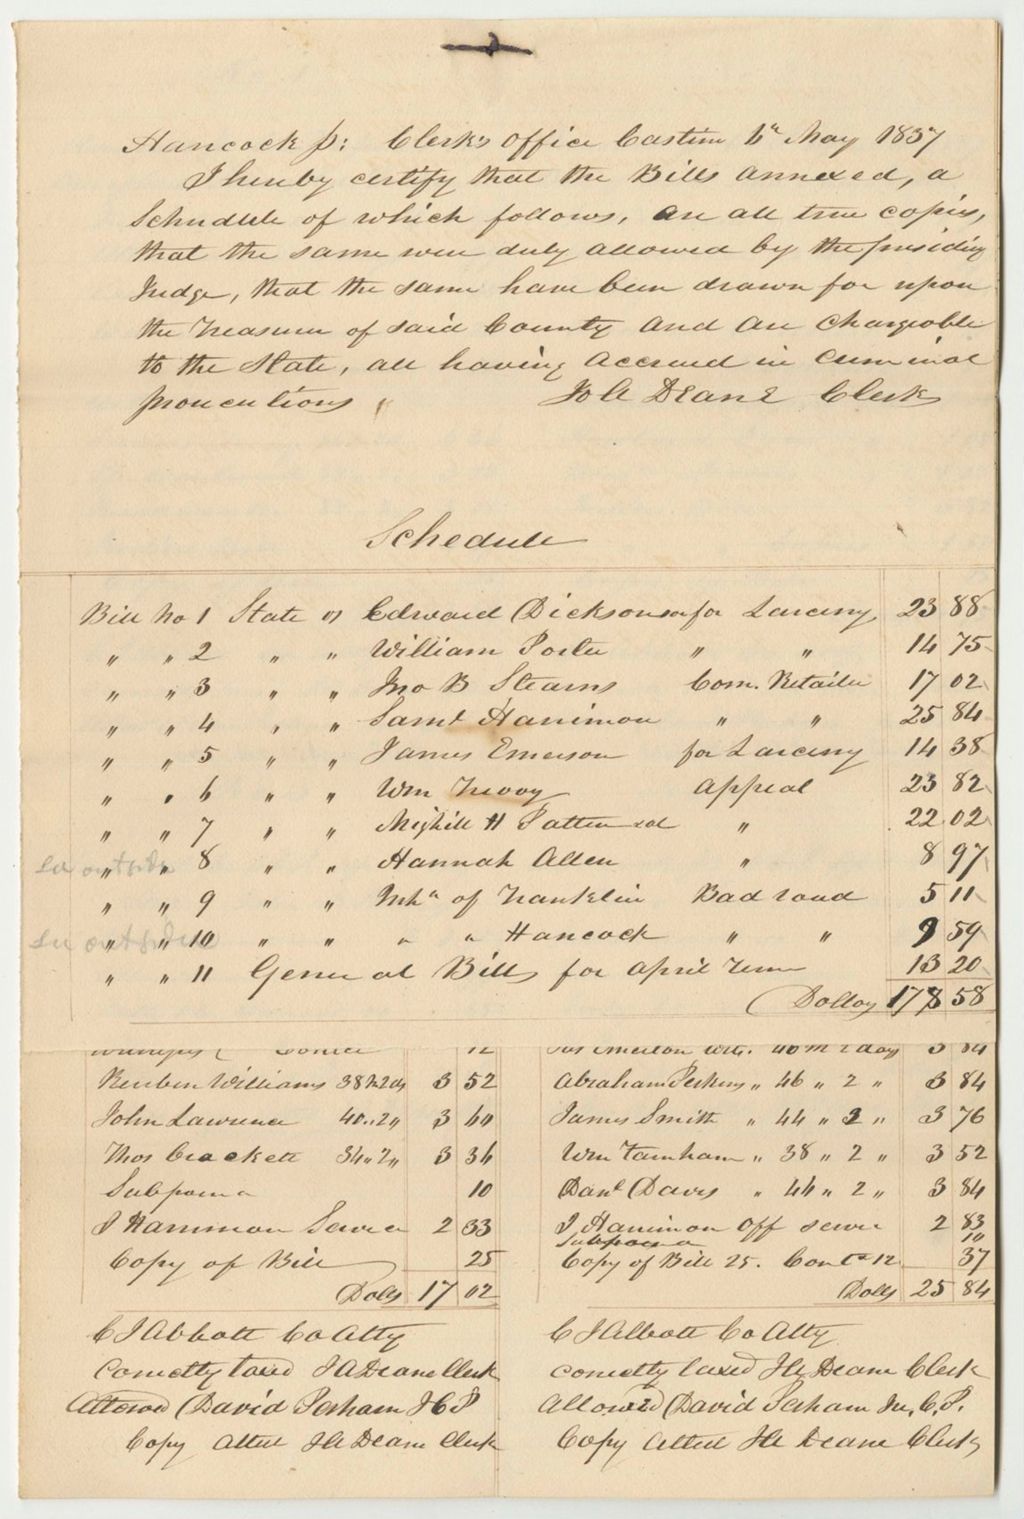 Hancock ss: Clerk's Office Castine 6th May 1837
I hereby certify that the Bills annexed, a
Schedule of which follows, are all true copies,
that the same were duly allowed by the presiding
Judge, that the same have been drawn for upon
the Treasurer of said County and are chargeable
to the State, all having accrued in Criminal
prosecutions
J A Deane Clerk
Schedule
Bill No 1 State vs Edward Dickson for Larceny 23 88
" " 2 " " William Porter " " 14 75
" " 3 " " Jno B Stearns Com. Retailer 17 02
" " 4 " " Saml Harrimon " " 25 84
" " 5 " " James Emerson for Larceny 14 38
" " 6 " " Wm appeal 23 82
" " 7 " " Mighill H Patten " 22 02
see outside
" " 8 " " Hannah Allen " 8 97
" " 9 " " Inhs of Franklin Bad road 5 11
see outside
" " 10 " " " " Hancock " " 9 59
" " 11 General Bills for April Term 13 20
Dollars 178 58
12
Reuben Williams 38 m 2 ds 3 52
John Lawrence 40 " 2 " 3 60
Thos Crackett 34 " 2 " 3 36
Subpoena 10
J Harrimon Service 2 33
Copy of Bill 25
Dolls 17 02
C J Abbott Co Atty
Correctly taxed J A Deane Clerk
Allowed David Perham J C P
Copy Attest J A Deane Clerk
Jas Emerton Wits. 46 m 2 days 3 84
Abraham Perkins " 46 " 2 " 3 84
James Smith " 44 " 2 " 3 76
Wm Farnham " 38 " 2 " 3 52
Danl Davis " 46 " 2 " 3 84
J Harrimon Off service 2 83
Subpoena 10
Copy of Bill 25. Cont ce 12 37
Dolls 25 84
C J Abbott Co Atty
correctly taxed J A Deane Clerk
Allowed David Perham Ju. C. P.
Copy Attest J A Deane Clerk